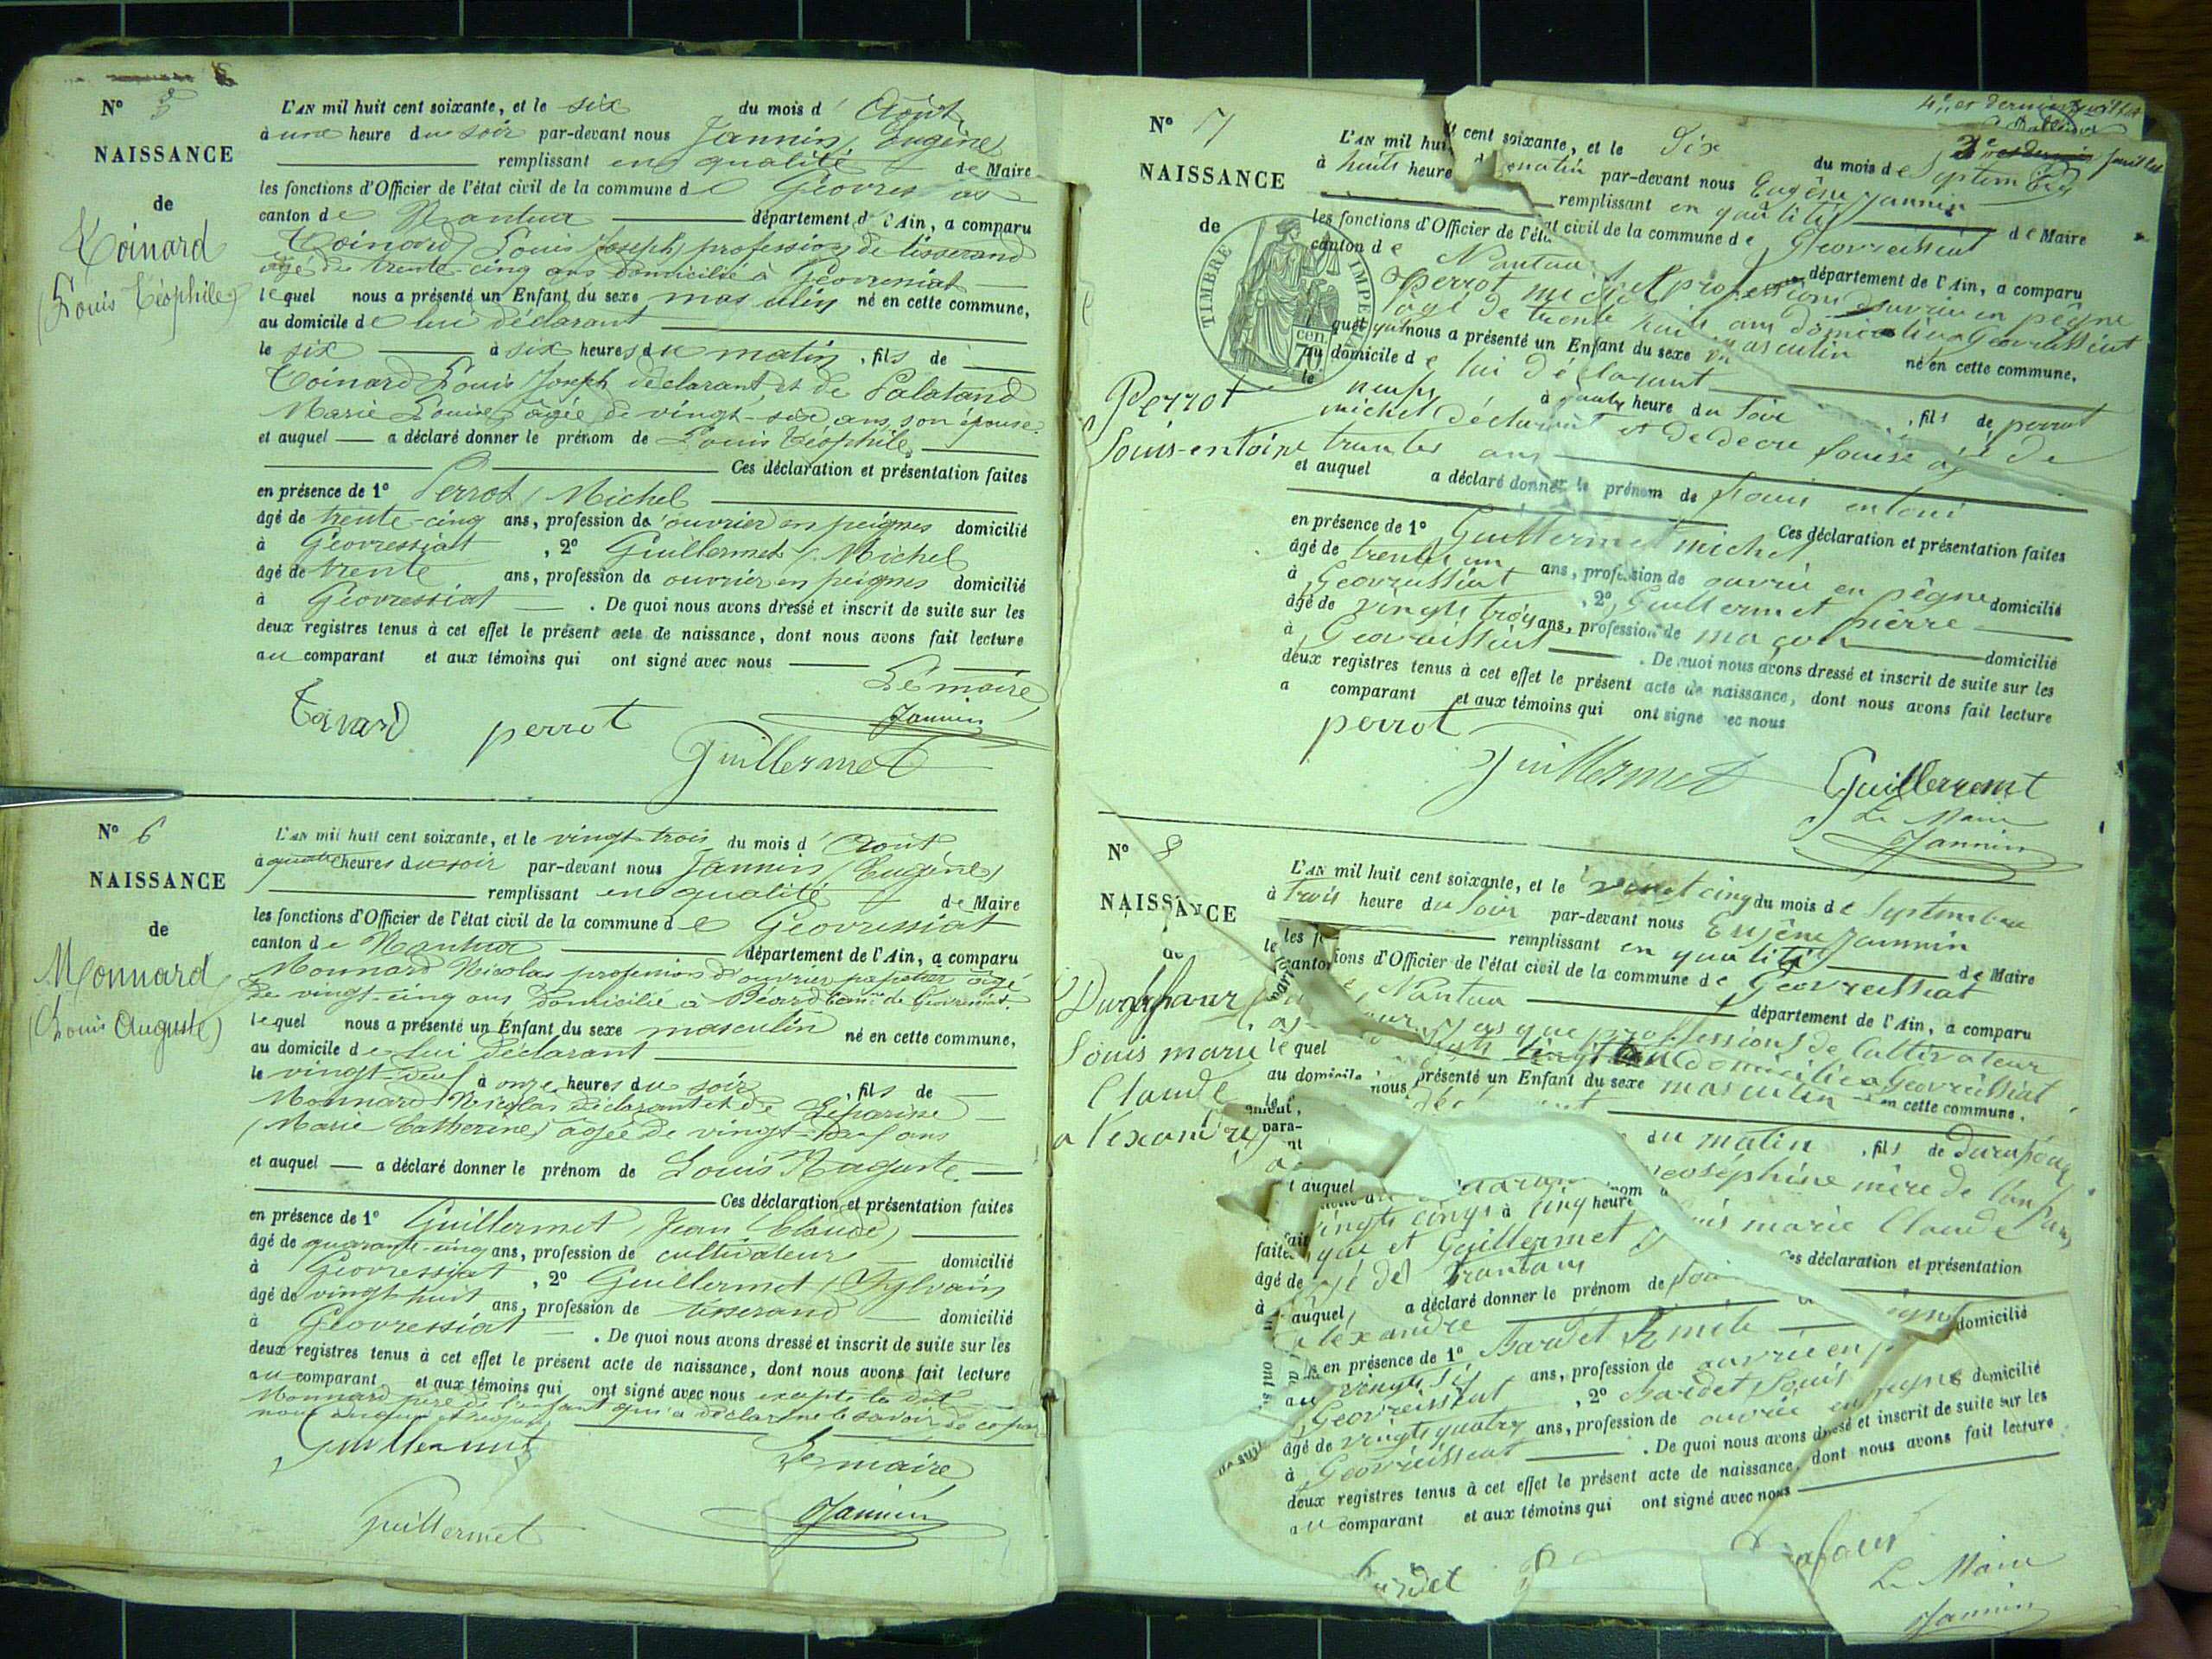 N° 5
NAISSANCE
de
Toinard
(Louis Téophile)
L'AN mil huit cent soixante, et le six du mois d'Août
à une heure du soir par-devant nous Jannin (Eugène)
remplissant en qualité de Maire
les fonctions d'Officier de l'état civil de la commune de
canton de Nantua département de l'Ain, a comparu
Toinard (Louis Joseph) profession de tisserand
âgé de trente-cinq ans domicilié à Géovressiat
lequel nous a présenté un Enfant du sexe masculin né en cette commune,
au domicile de lui déclarant
le six à six heures du matin, fils de
Toinard Louis Joseph déclarant et de
Marie Louise âgée de vingt-six ans son épouse
et auquel a déclaré donner le prénom de Louis Téophile
Ces déclaration et présentation faites
en présence de 1° Perrot (Michel
âgé de trente-cinq ans, profession de ouvrier en peignes domicilié
à Géovressiat, 2° Guillermet (Michel
âgé de trente ans, profession de ouvrier en peignes domicilié
à Géovressiat. De quoi nous avons dressé et inscrit de suite sur les
deux registres tenus à cet effet le présent acte de naissance, dont nous avons fait lecture
au comparant et aux témoins qui ont signé avec nous
Le maire
perrot
Jannin
Guillermet
N° 6
NAISSANCE
de
Monnard
(Louis Auguste)
L'AN mil huit cent soixante, et le vingt-trois du mois d'Août
à quatre heures du soir par-devant nous Jannin (Eugène)
remplissant en qualité de Maire
les fonctions d'Officier de l'état civil de la commune de Géovressiat
canton de Nantua département de l'Ain, a comparu
Monnard Nicolas profession d'ouvrier papetier âgé
de vingt-cinq ans domicilié à
lequel nous a présenté un Enfant du sexe masculin né en cette commune,
au domicile de lui déclarant
le vingt-deux à onze heures du soir, fils de
Monnard Nicolas déclarant et de
(Marie Catherine) âgée de ans
et auquel a déclaré donner le prénom de Louis Auguste
Ces déclaration et présentation faites
en présence de 1° Guillermet (Jean Claude)
âgé de quarante-cinq ans, profession de cultivateur domicilié
à Géovressiat, 2° Guillermet (Sylvain
âgé de vingt huit ans, profession de tisserand domicilié
à Géovressiat. De quoi nous avons dressé et inscrit de suite sur les
deux registres tenus à cet effet le présent acte de naissance, dont nous avons fait lecture
au comparant et aux témoins qui ont signé avec nous excepté le dit
Monnard père de l'enfant qui a déclaré ne le savoir de ce
Guillermet
Le maire
Guillermet
Jannin
N° 7
NAISSANCE
de
TIMBRE IMPE
70 cen.
Perrot
Louis-entoine
L'AN mil huit cent soixante, et le Dix du mois de Septembre
à huits heure du matin par-devant nous Eugêne Jannin
remplissant en qualité de Maire
les fonctions d'Officier de l'état civil de la commune de Géovreissiat
canton de Nantua département de l'Ain, a comparu
perrot michel profession d'ouvrier en pêgne
âgé de trente huit ans domicilié a Géovreissiat
quel nous a présenté un Enfant du sexe masculin né en cette commune,
au domicile de lui déclarant
le neuf à heure du Soir, fils de perrot
michel déclarant et de Louise âgé de
ans
et auquel a déclaré donner le prénom de Louis
Ces déclaration et présentation faites
en présence de 1° Guillermet michel
âgé de trente un ans, profession de ouvrié en pêgne domicilié
à Géovreissiat, 2° Guillermet pierre
âgé de vingts trois ans, profession de maçon domicilié
à Géovreissiat. De quoi nous avons dressé et inscrit de suite sur les
deux registres tenus à cet effet le présent acte de naissance, dont nous avons fait lecture
a comparant et aux témoins qui ont signé avec nous
perrot
Guillermet
Guillermet
Le Maire
Jannin
N° 8
NAISSANCE
Louis marie
Claude
alexandre
L'AN mil huit cent soixante, et le vingt cinq du mois de Septembre
à trois heure du Soir par-devant nous Eugêne Jannin
remplissant en qualité de Maire
ions d'Officier de l'état civil de la commune de Géovreissiat
Nantua département de l'Ain, a comparu
profession de Cultivateur
domicilié a Géovreissiat
le quel nous présenté un Enfant du sexe masculin en cette commune.
au domicile
du matin, fils de
joséphine mère de l'enfant
auquel
vingts cinqs à cinq heure
et Guillermet
marie Claude
Ces déclaration et présentation
faite
âgé de
auquel a déclaré donner le prénom de
alexandre
en présence de 1° Bardet Emile
vingts six ans, profession de ouvrié en domicilié
Géovreissiat, 2° Bardet Louis
âgé de vingts quatre ans, profession de ouvrié en pegne domicilié
à Géovreissiat. De quoi nous avons dressé et inscrit de suite sur les
deux registres tenus à cet effet le présent acte de naissance, dont nous avons fait lecture
au comparant et aux témoins qui ont signé avec nous
Bardet
Le Maire
Jannin